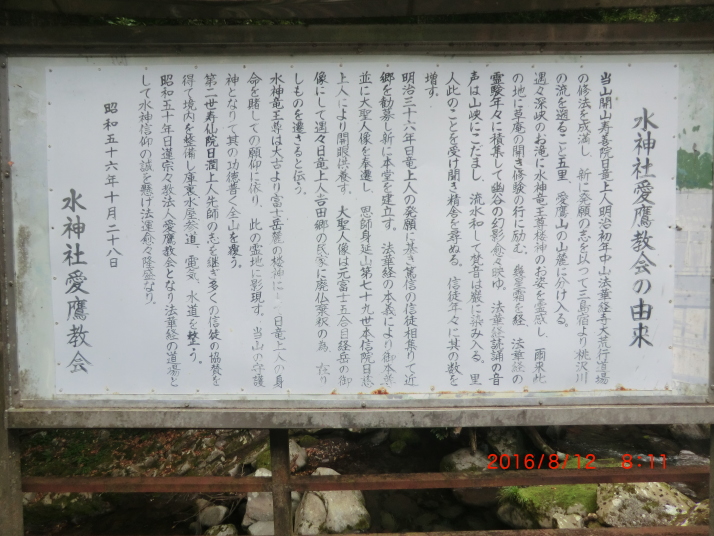 水神社愛鷹教会の由来
当山開山寿喜院日竜上人明治初年中山法華経寺大荒行道場
の修法を成満し 新に発願の志を以って三島宿より桃沢川
の流を遡ること五里 愛鷹山の山麓に分け入る。
遇々深峡のお滝に水神竜王尊棲神のお姿を霊感し 爾来此
の地に草庵の開き修験の行に励む 幾星霜を経 法華経の
霊験年々に積集して幽谷の幻影愈々映ゆ 法華経読誦の音
声は山峡にこだまし 流水和して梵音は巌に染み入る。里
人此のことを受け開き精舎を尋ぬる 信徒年々に其の数を
増す。
明治三十六年日竜上人の発願に基き篤信の信徒相集りて近
郷を勧募し新に本堂を建立す。法華経の本義により御本尊
並に大聖人像を奉遷し 恩師身延山第七十九世本信院日慈
上人により開眼供養す。大聖人像は元富士五合目経岳の御
像にして遇々日竜上人吉田郷の民家に廃仏棄釈の為 在り
しものを遷さると伝う。
水神竜王尊は太古より富士岳麓の棲神にし 日竜上人の身
命を賭しての願仰に依り 此の霊地に影現す。当山の守護
神となりて其の功徳普く全山を覆う。
第二世寿仙院日潤上人先師の志を継ぎ多くの信徒の協賛を
得て境内を整備し庫裏水屋参道、電気、水道を整う。
昭和五十年日蓮宗々教法人愛鷹教会となり法華経の道場と
して水神信仰の誠を懸け法運愈々隆盛なり。
昭和五十六年十月二十八日
水神社愛鷹教会
2016/8/12 8:11